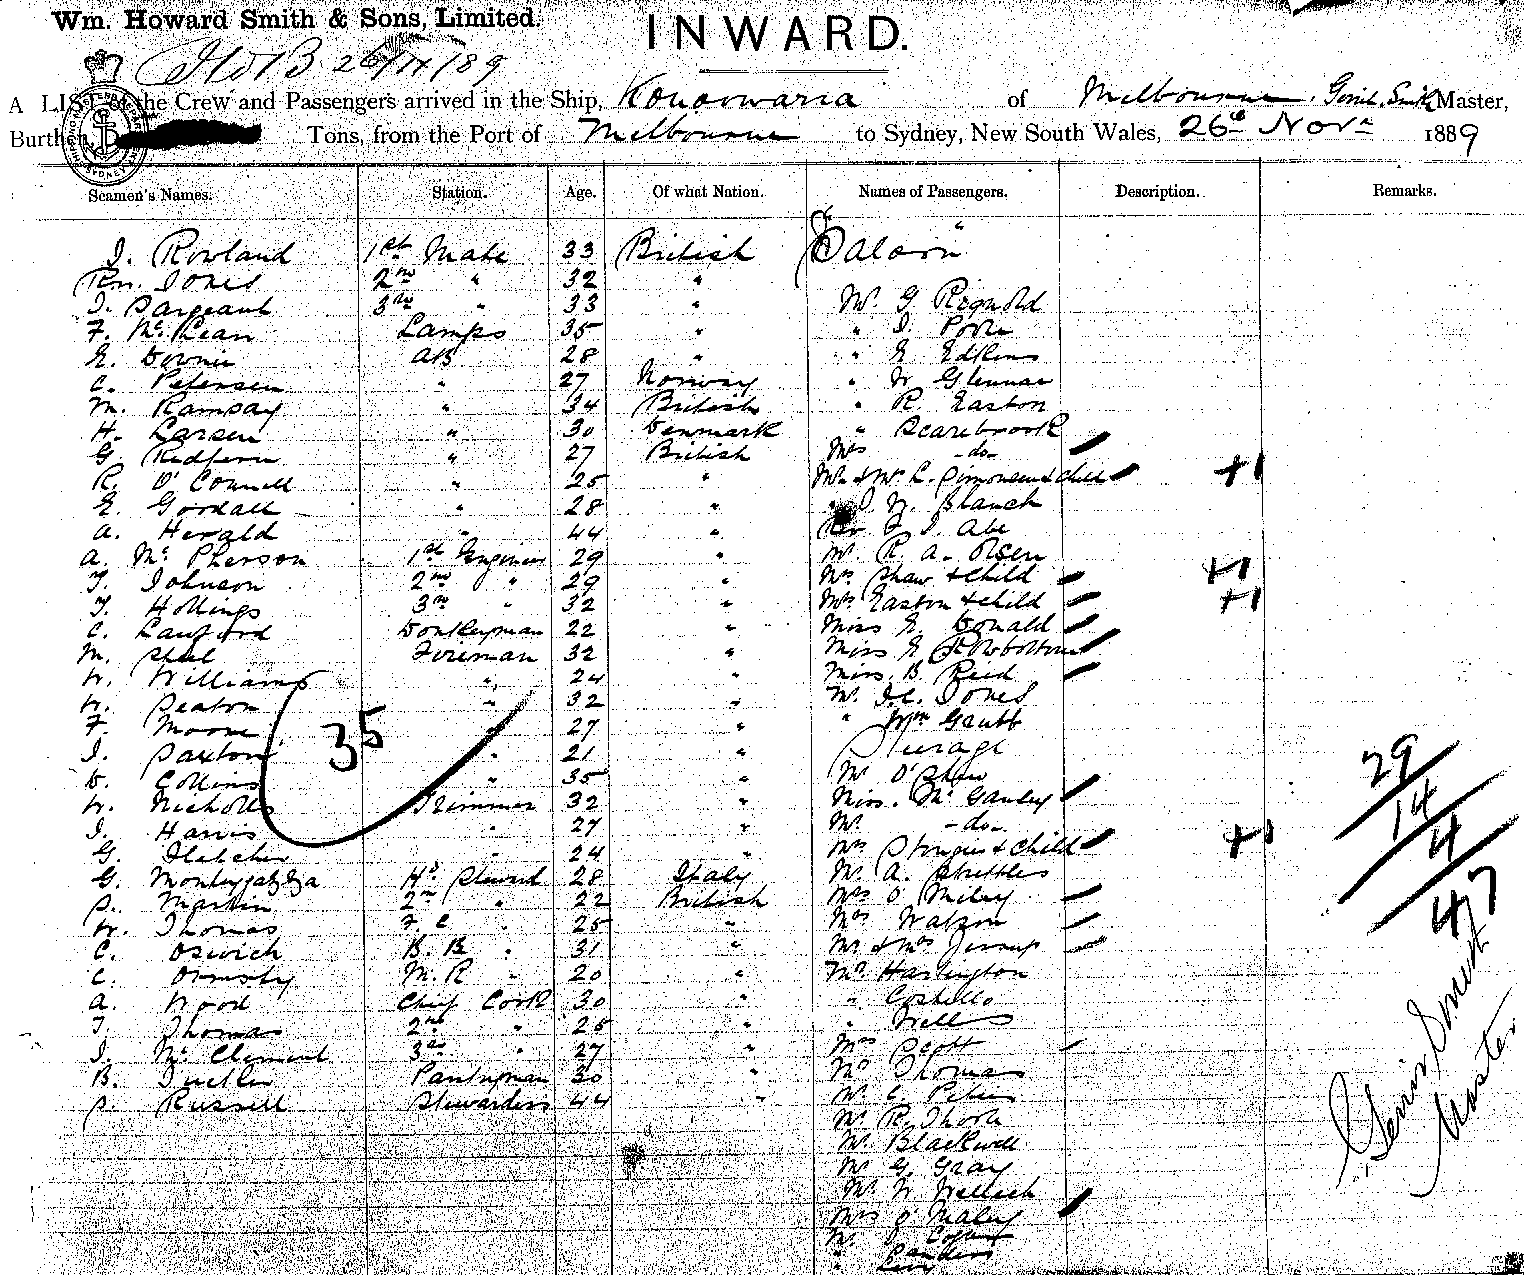 Wm. Howard Smith & Sons, Limited.
INWARD.
26/11/89
A LIST of the Crew and Passengers arrived in the Ship, Konoowarra of Melbourne, Smith Master,
Burthen, Tons, from the Port of Melbourne to Sydney, New South Wales, 26th Novr 1889
Seamen's Names. Station. Age. Of what Nation. Names of Passengers. Description. Remarks.
J. Rowland 1st Mate 33 British Saloon
Jones 2nd " 32 "
J. Sargeant 3rd " 33 " Mr. G
F. McLean Lamps 35 " " J. Poole
E. Downie AB 28 " " E Edkins
C. Petersen " 27 Norway " W Glennan
M. Ramsay " 34 British " R. Easton
H. Larsen " 30 Denmark " Scarebrook
G. Redfern " 27 British Mrs -do-
R. O'Connell " 25 " Mr. & Mrs L. Simonsen & child +1
E. Goodall " 28 " J. W. Blanch
A. Herald " 44 " Abe
A. McPherson 1st Engineer 29 " Mr. R. A. Olsen
T. Johnson 2nd " 29 " Mrs Shaw & child +1
T. Hollings 3rd " 32 " Mrs Easton & child +1
C. Lawford Donkeyman 22 " Miss E. Donald
M. Shiel Fireman 32 " Miss E Rowbottom
W. Williams " 24 " Miss B. Reid
W. Seaton " 32 " Mr. J.C. Jones
F. Moore " 27 " " Wm Gaubb
J. Saxton " 21 " Steerage
D. Collins " 35 " Mr O'Shaw
W. Nicholls Trimmer 32 " Miss McGauley
J. Harris " 27 " Mr. -do-
G. Fletcher " 24 " Mrs Stongus & child +1
G. Hd Steward 28 Italy Mr. A.
S. Martin 2nd " 22 British Mrs O'
W. Thomas F. C. " 25 " Mrs Watson
C. Oswich B. B " 31 " Mr & Mrs Jessup
C. Ormsby M. R " 20 " Mr. Harlington
A. Wood Chief Cook 30 " " Costello
T. Thomas 2nd " 25 " " Wells
J. McClement 3rd " 27 " Mrs Scott
B. Pantryman 30 " Mr Thomas
S. Russell Stewardess 44 " Mr C
Mr. R. Thorn
Mr. Blackwell
Mr G. Gray
Mr W Wallach
Mrs O'Maley
35
29
14
4
47
Smith
Master